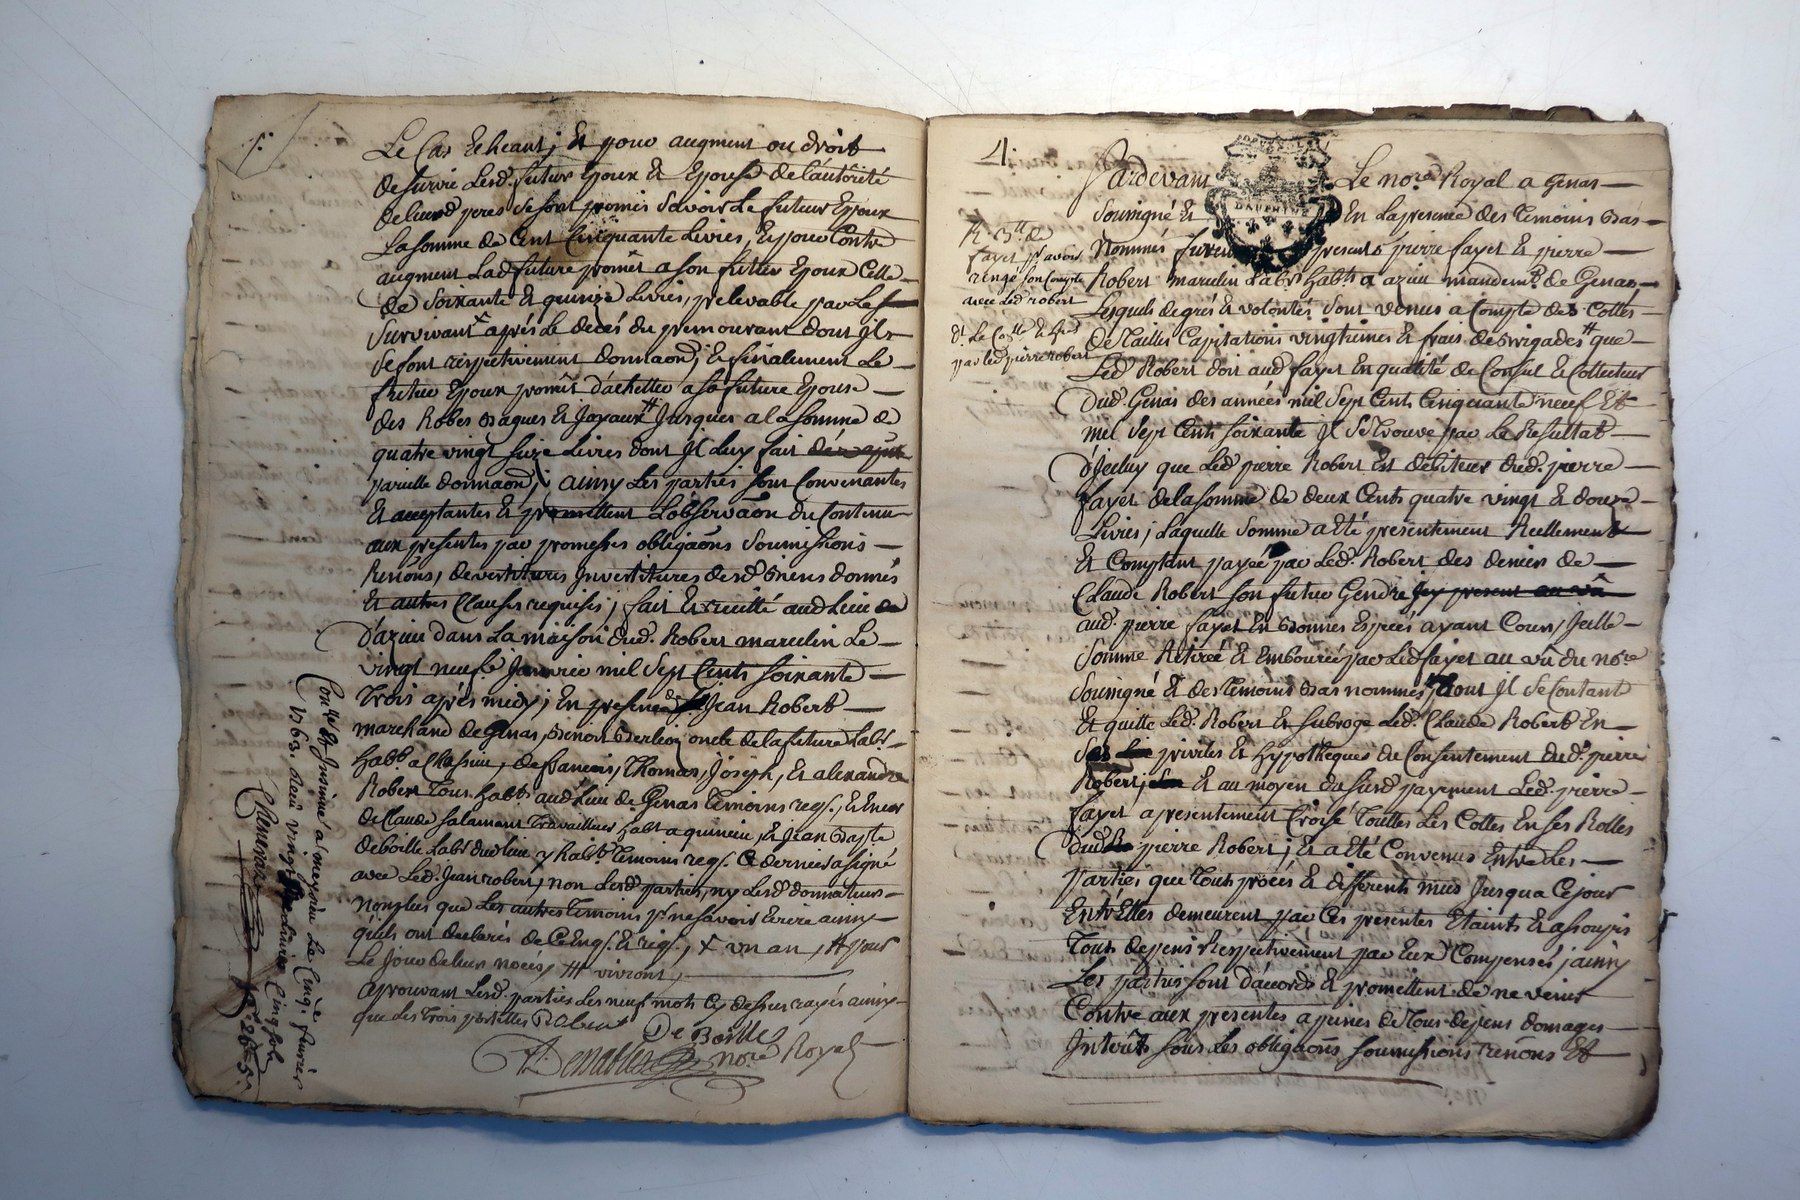 Le Cas Echeant; Et pour augment ou droit
de survie Lesd. futur Epoux Et Epouse de l'autôrité
de leursd peres se sont promis Sçavoir Le futur Epoux
La somme de Cent Cinquante Livres, Et pour Contre
augment Lad future promêt a son futur Epoux Celle
de Soixante Et quinze Livres, prelevable par Le
Survivant + aprés Le decés du premourant dont Jls
se font respectivement donnaon; Et finalement Le
futur Epoux promêt d'achetter a sa future Epouse
des Robes Bagues Et Joyaux # Jusques a la somme de
quatre vingt seize Livres dont Jl Luy fait
pareille donnaon; ainsy Les parties sont Convenantes
Et acceptantes Et promettent L'observaon du Contenu
aux presentes par promesses obligaons Soumissions
Renons, devestitures Investitures desd Biens donnés
Et autres Clauses requises; fait Et recitté aud Lieu
d'azieu dans La maison dud. Robert marcelin Le
vingt neuf Janvier mil Sept Cents soixante
Trois aprés midy; En presence de Jean Robert
marchand de Genas, oncle de la future Lab.r
hab.t a Chassieu, de francois, Thomas, Joseph, Et alexandre
Robert Tous hab.ts aud Lieu de Genas Temoins req.s, Et Encor
de Claude salamant Travailleur hab.t a quincieu, Et Jean Bapte
deboille Lab.r dud Lieu y hab.t Temoins req.s Ce dernier a signé
avec Led. Jean robert, non Lesd parties, ny Lesd donnateurs
nonplus que Les autres Temoins p.r ne sçavoir Ecrire ainsy
qu'ils ont declarés de Ce Enq.s Et req.s, + un an, # pour
Le Jour de leur noces, ### vivront,
aprouvant Lesd. parties Les neuf mots Cy dessus rayés ainsy
que Les Trois
Robert De Boille
no.re Royal
Con.lé Et Insinué a meyzieu Le Cinq.e fevrier
1763. Reçu vingt
4.
Pardevant Le no.re Royal a Genas
DAUPHINÉ
Soussigné Et En La presence des Temoins Bas
Nommés furent presents pierre fayet Et pierre
Robert marcelin Lab.rs hab.ts a azieu mandem.t de Genas
Lesquels de grés Et volontés sont venus a Compte des Cottes
de Tailles Capitations vingtiemes Et frais de brigades # que
Led Robert doit aud fayet En qualité de Consul Et Collecteur
dud Genas des années mil Sept Cents Cinquante neuf Et
mil Sept Cents soixante Jl se Trouve par Le Resultat
d'Jceluy que Led pierre Robert Est debiteur dud. pierre
fayet de la somme de deux Cents quatre vingt Et douze
Livres; Laquelle Somme a Eté presentement Reellement
Et Comptant payée par Led. Robert des deniers de
Claude Robert son futur Gendre
aud. pierre fayet En Bonnes Especes ayant Cours, Jcelle
Somme Retirée Et Emboursée par Led fayet au vû du no.re
Soussigné Et des Temoins Bas nommés, dont Jl se Contant
Et quitte Led. Robert Et subroge Led. Claude Robert En
Ses privileges Et Hypotheques du Consentement dud. pierre
Robert, Et au moyen du susd payement Led. pierre
fayet a presentement Croisé Touttes Les Cottes En ses Rolles
dud pierre Robert; Et a Eté Convenus Entre Les
Parties que Touts procés Et differents mus Jusqu'a Ce jour
Entr'Elles demeurent par Ces presentes Etaints Et assoupis
Tous depens Respectivement par Eux Compensés; ainsy
Les parties sont d'accords Et promettent de ne venir
Contre aux presentes a peines de Tous depens domages
Interêts sous Les obligaons soumissions renons Et
fayet p.r avoir
rengé son Compte
avec Led robert
par led pierre robert